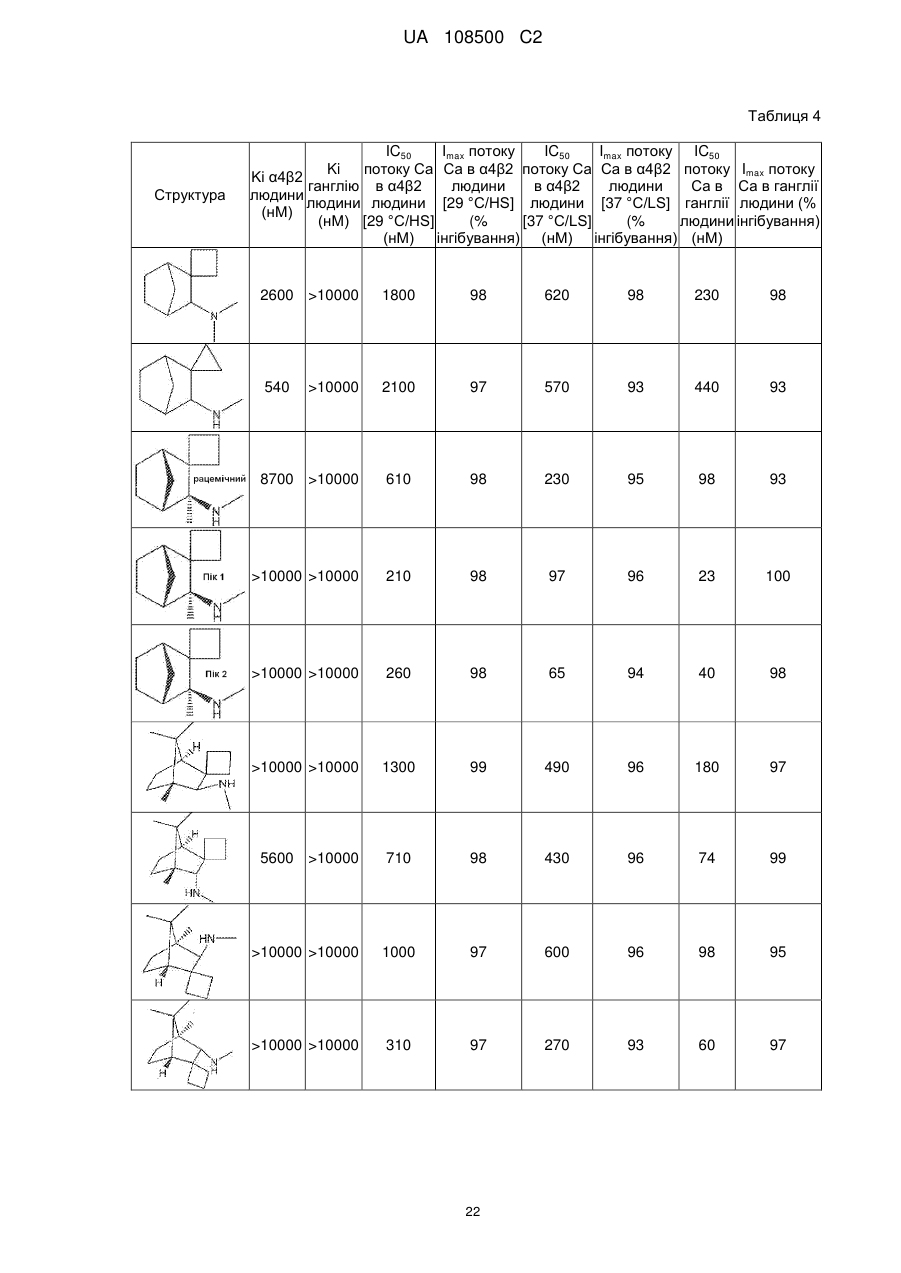 UA 108500 C2
Таблиця 4
Структура
Ki α4β2 людини (нМ)
Ki гангл­ію людини (нМ)
IC50 потоку Ca в α4β2 людини [29 °C/HS] (нМ)
Imax потоку Ca в α4β2 людини [29 °C/HS] (% інгібування)
IC50 потоку Ca в α4β2 людини [37 °C/LS] (нМ)
Imax потоку Ca в α4β2 людини [37 °C/LS] (% інгібування)
IC50 потоку Ca в ганглії людини (нМ)
Imax потоку Ca в ганглії людини (% інгібування)
N
2600 >10000 1800 98 620 98 230 98
N
H
540 >10000 2100 97 570 93 440 93
рацемічний
N
H
8700 >10000 610 98 230 95 98 93
Пік 1
N
H
>10000 >10000 210 98 97 96 23 100
Пік 2
N
H
>10000 >10000 260 98 65 94 40 98
H
NH
>10000 >10000 1300 99 490 96 180 97
H
HN
5600 >10000 710 98 430 96 74 99
HN
H
>10000 >10000 1000 97 600 96 98 95
N
H
H
>10000 >10000 310 97 270 93 60 97
22